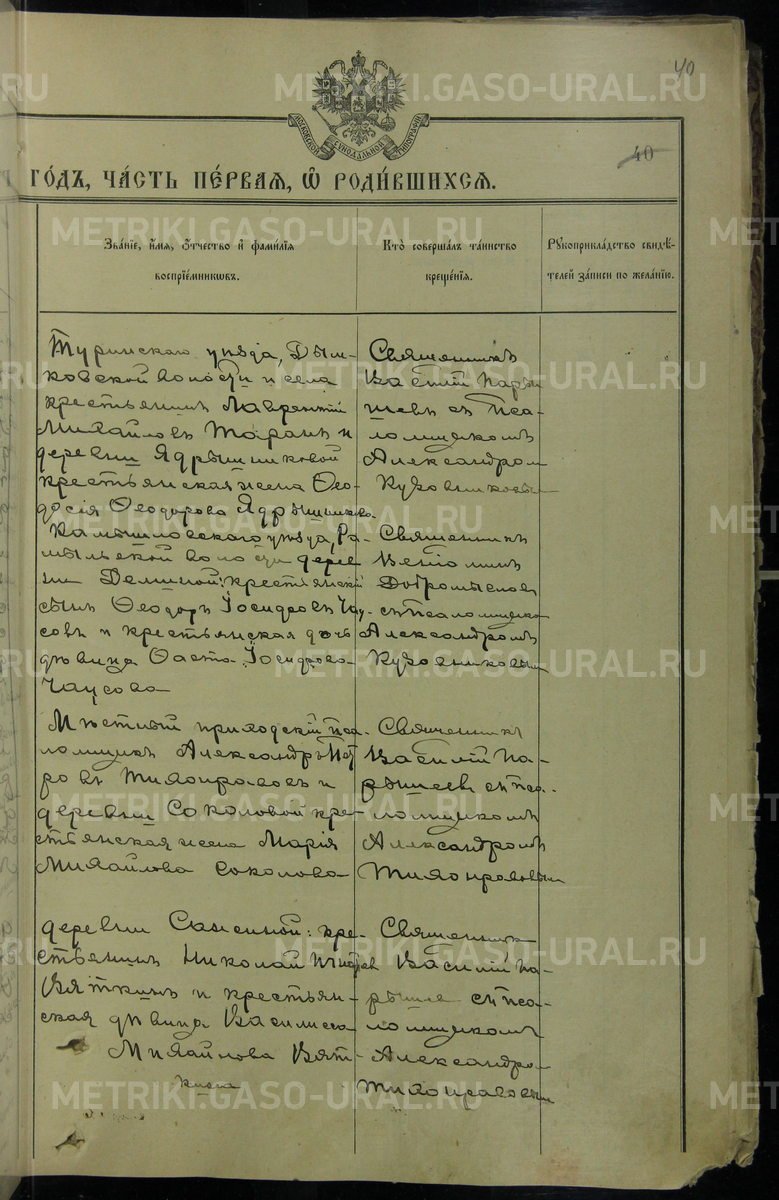 40
МОСКОВСКОЙ СѴНОДАЛЬНОЙ ТИПОГРАФІИ
40
ГО́ДЪ, ЧА́СТЬ ПЕ́РВАѦ, Ѡ҆ РОДИ́ВШИХСѦ.
Зва́нїе, и҆́мѧ, ѻ҆́тчество и҆ фами́лїѧ
воспрїе́мниковъ.
Кто̀ соверша́лъ та́инство
креще́нїѧ.
Рꙋкоприкла́дство свидѣ́-
телей за́писи по жела́нїю.
Туринскаго уѣзда, Дым-
ковской волости и села
крестьянинъ Лаврентій
Михайловъ Таранъ и
деревни Ядрышниковой
крестьянская жена Өео-
досія Өеодорова Ядрышникова
Священникъ
Василій Пары
шевъ съ Пса-
ломщикомъ
Александром
Кузовниковы
Камышловскаго уѣзда, Ра-
мыльской волости дерев
ни Деминой: крестьянскій
сынъ Өеодоръ Исидоровъ Чау-
совъ и крестьянская дочь
дѣвица Исидорова
Чаусова
Священникъ
Веніаминъ
Добромысловъ
съ псаломщико
Александромъ
Кузовниковым
Мѣстный приходскій пса-
ломщикъ Александръ Пет
ровъ Тихонравовъ и
деревни Соколовой кре-
стьянская жена Марія
Михайлова Соколова
Священникъ
Василій Па-
рышевъ съ пса-
ломщикомъ
Александромъ
Тихонравовым
деревни: кре-
стьянинъ Николай
Вяткинъ и крестьян-
ская дѣвица Василисса
Михайлова Вят-
кина
Священникъ
Василій Па-
рыше съ пса-
ломщикомъ
Александро
Тихонравовым
METRIKI.GASO-URAL.RU